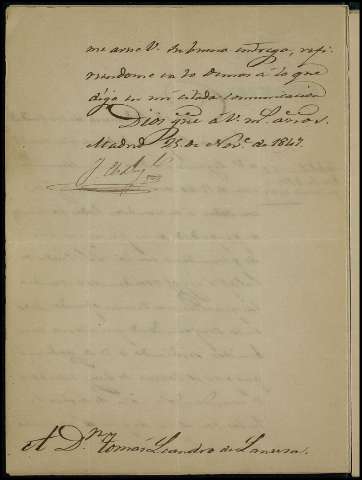 me avise V. su buena entrega, refi-
riendome en lo demas á lo que
digo en mi citada comunicacion
Dios gue á V. ms. años.
Madrid 25 de Nove. de 1847.
A Dn. Tomás Leandro de